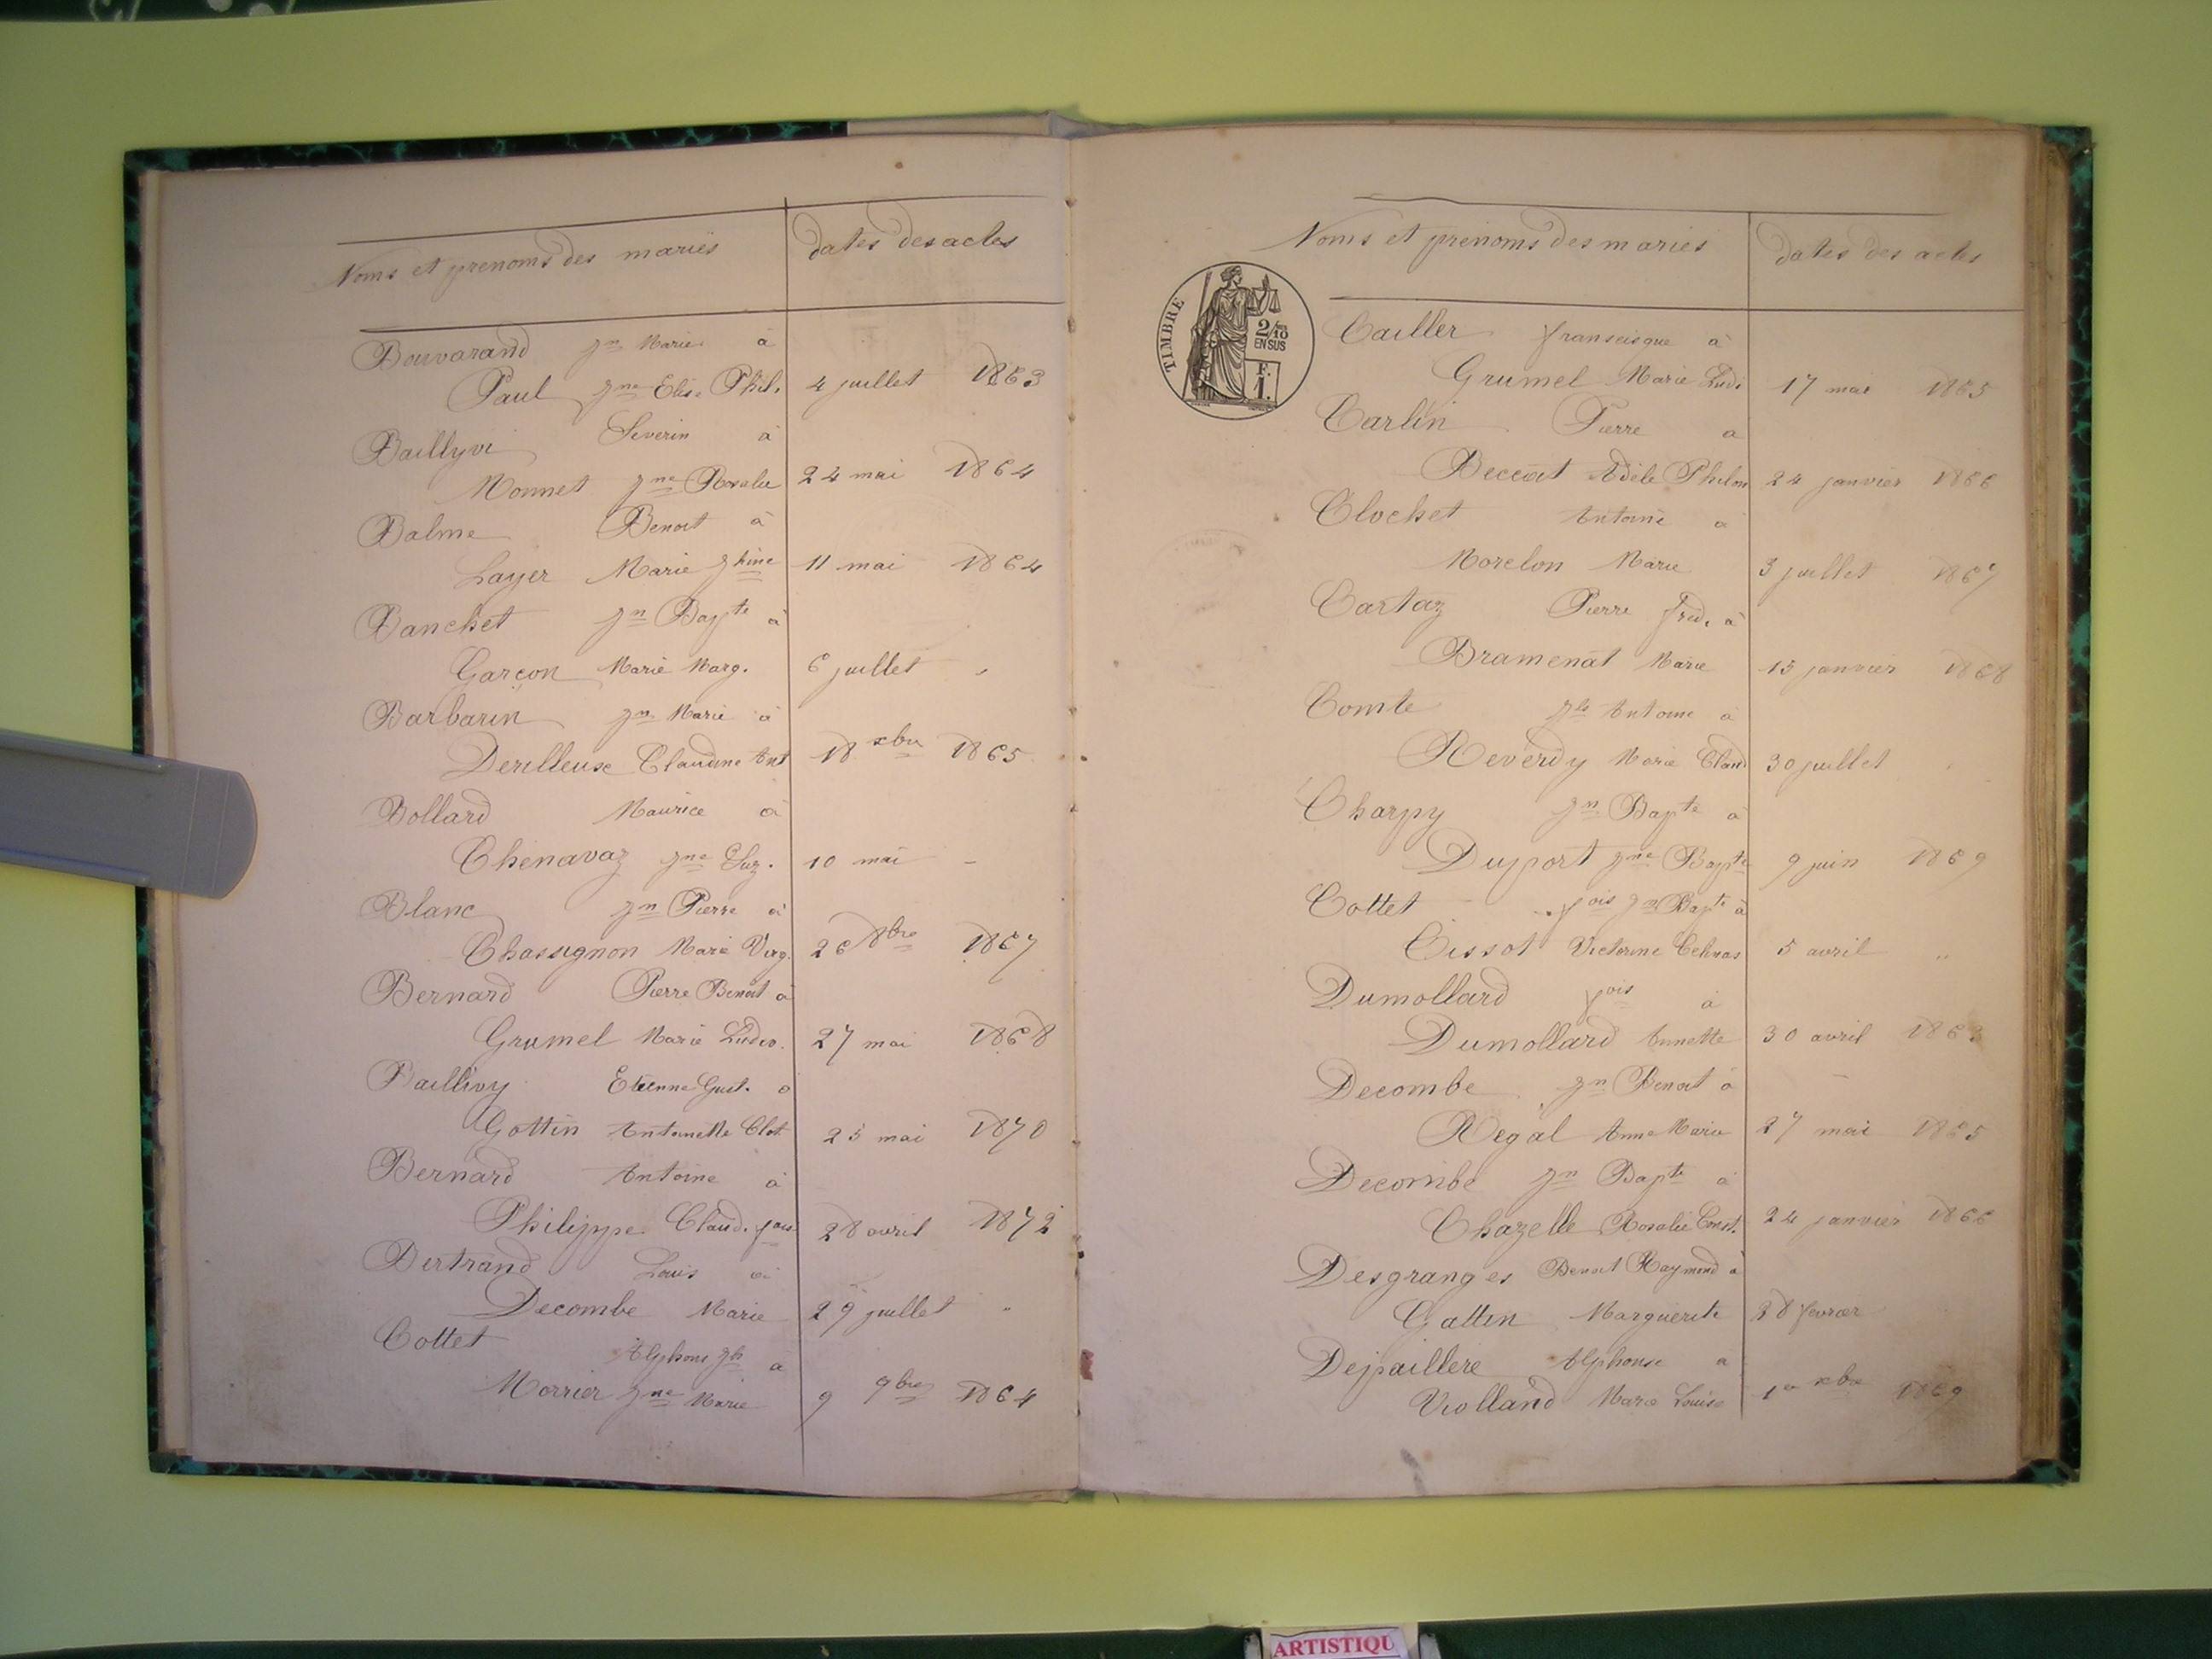 Noms et prenoms des mariés dates des actes
Bouvarand Jn Marie à
Paul Jne Elis. Phil. 4 juillet 1863
Baillyvi Severin à
Monnet Jne Rosalie 24 mai 1864
Balme Benoit à
Layer Marie Jhine 11 mai 1864
Banchet Jn Bapte à
Garçon Marie Marg. 6 juillet "
Barbarin Jn Marie à
Derilleuse Claudine Ant 18 xbre 1865
Bollard Maurice à
Chenavaz Jne Suz. 10 mai -
Blanc Jn Pierre à
Chassignon Marie Virg. 26 8bre 1867
Bernard Pierre Benoit à
Grumel Marie Ludov. 27 mai 1868
Baillivy Etienne Gust. à
Gottin Antoinette Clot. 25 mai 1870
Bernard Antoine à
Philippe Claud. fois 28 avril 1872
Bertrand Louis à
Decombe Marie 29 juillet "
Cottet Alphons Jh à
Morrier Jne Marie 9 9bre 1864
Noms et prenoms des mariés dates des actes
TIMBRE
2/10
EN SUS
F.
1.
Cailler franscisque à
Grumel Marie Ludi 17 mai 1865
Carlin Pierre à
Adèle Philom 24 janvier 1866
Clochet Antoine à
Morelon Marie 3 juillet 1867
Cartaz Pierre fred. à
Bramenat Marie 15 janvier 1868
Comte Antoine à
Reverdy Marie Claud 30 juillet
Charpy Jn Bapte à
Duport Jne Bapte 9 juin 1869
Cottet fois Jn Bapte à
Cissot Victorine 5 avril "
Dumollard fois à
Dumollard Annette 30 avril 1863
Decombe Jn Benoit à
Regal Anne Marie 27 mai 1865
Decombe Jn Bapte à
Chazelle Rosalie Const. 24 janvier 1866
Desgranges Benoit Raymond à
Gattin Marguerite 28 fevrier
Depaillere Alphonse à
Violland Marie Louise 1er xbre 1869
ARTISTIQU